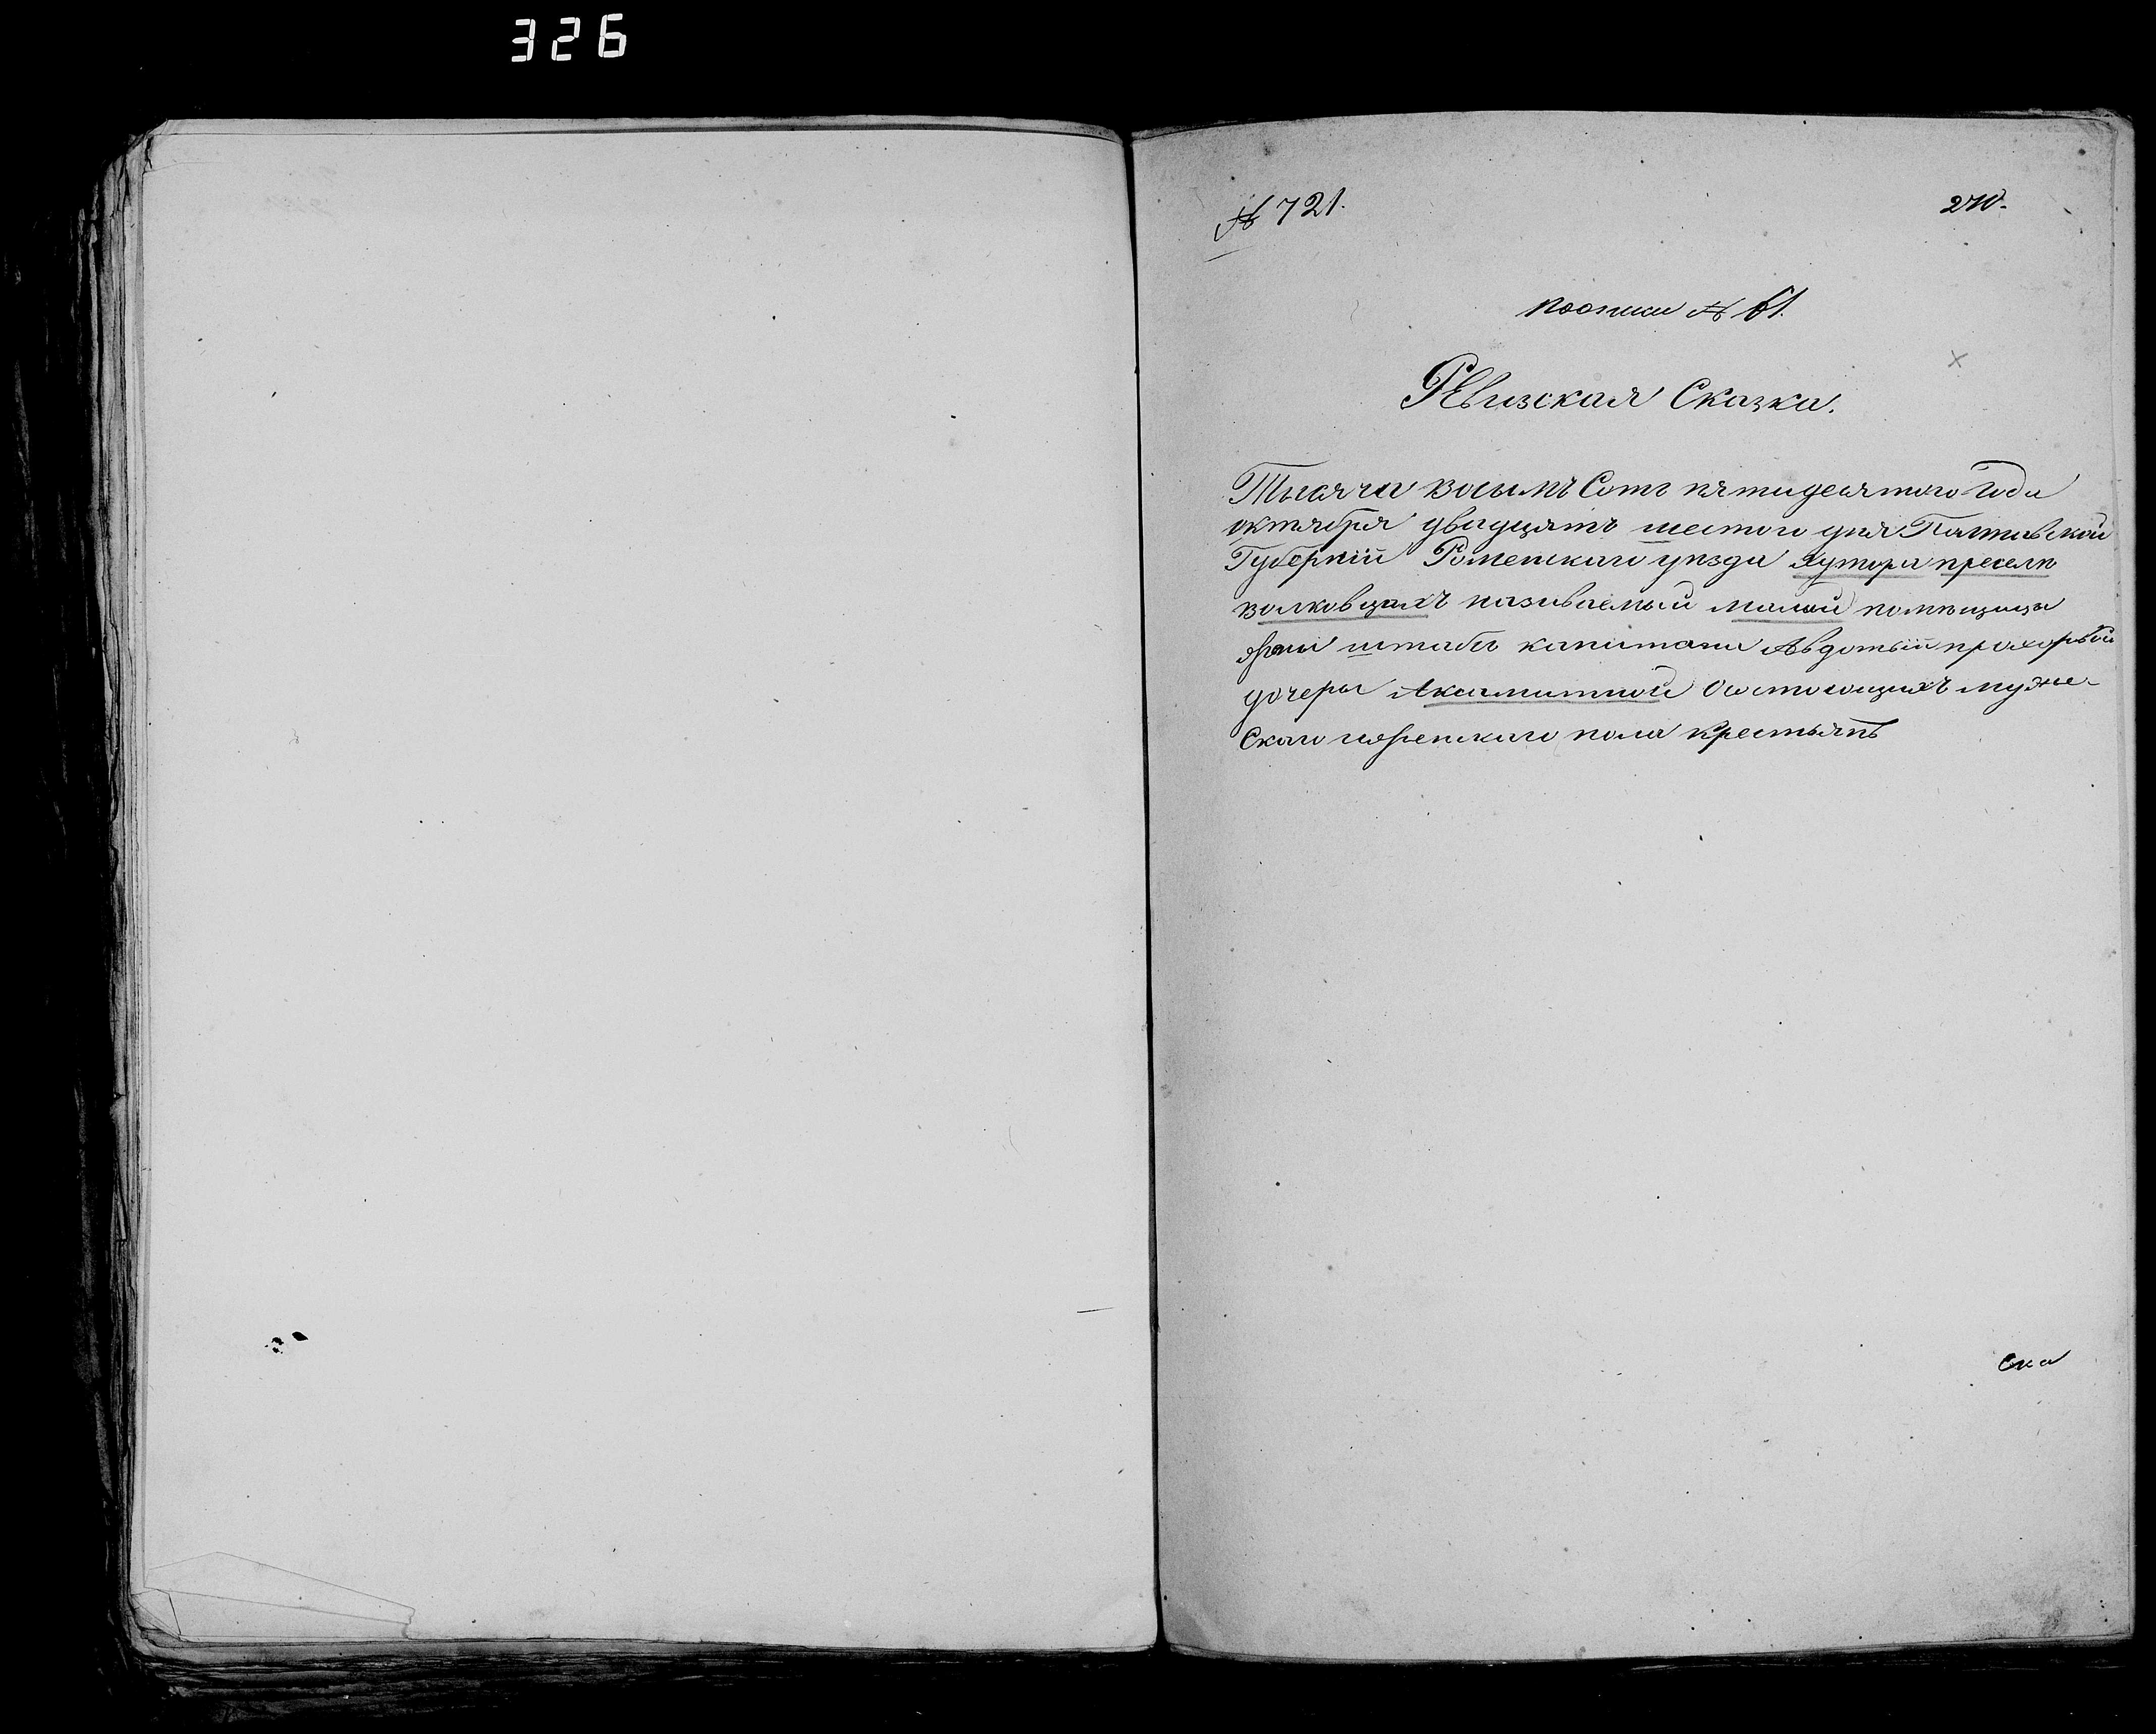 326
№ 721.
270.
поописи № 61.
РЕвизская Сказка.
Тысяча восымъ Сотъ пятидесятого Года
октября двадцять шестого дня Полтавской
Губерніи Роменскаго уѣзда хутора преселѣ
волковцахъ называемый малый помѣщицы
жены штабъ капитана Авдотьіи прохоровой
дочеры Акамитной Состоющихъ муже-
Скаго иженскаго пола Крестьянъ
Ска